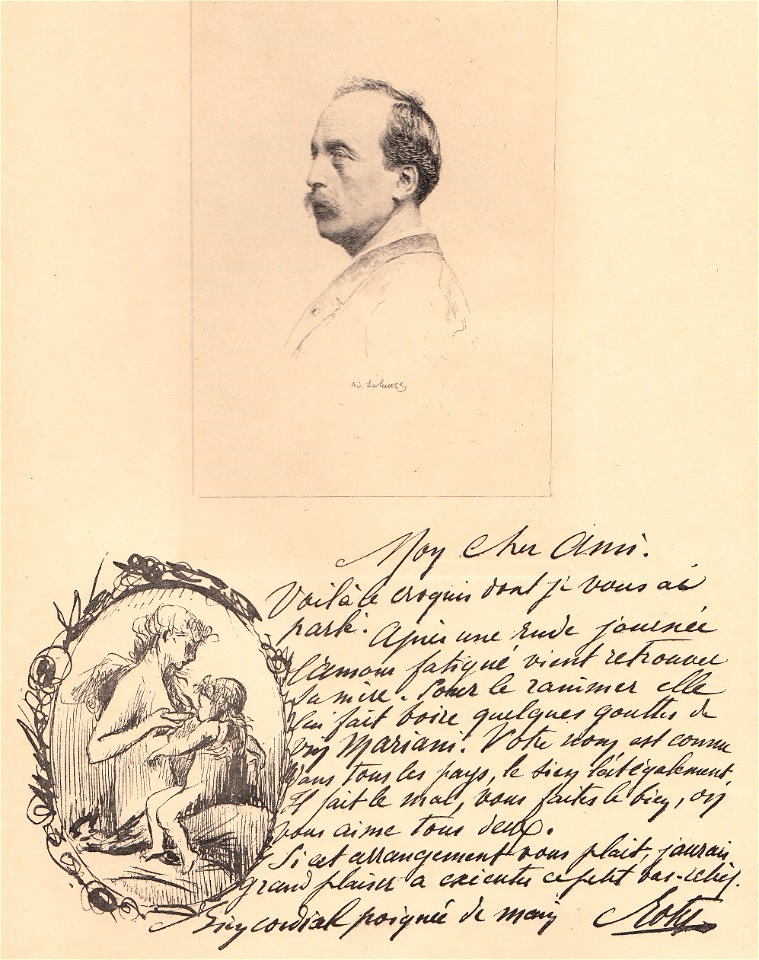 Ad. Lalauze
Mon cher Ami.
Voilà le croquis dont je vous ai
parlé. Après une rude journée
l'Amour fatigué vient retrouver
sa mère. Pour le ranimer elle
lui fait boire quelques gouttes de
vin Mariani. Votre nom est connu
dans tous les pays, le sien l'est également.
Il fait le mal, vous faites le bien, on
vous aime tous deux.
Si cet arrangement vous plait, j'aurais
grand plaisir a exécuter ce petit bas-relief.
Bien cordial poignée de main Roty